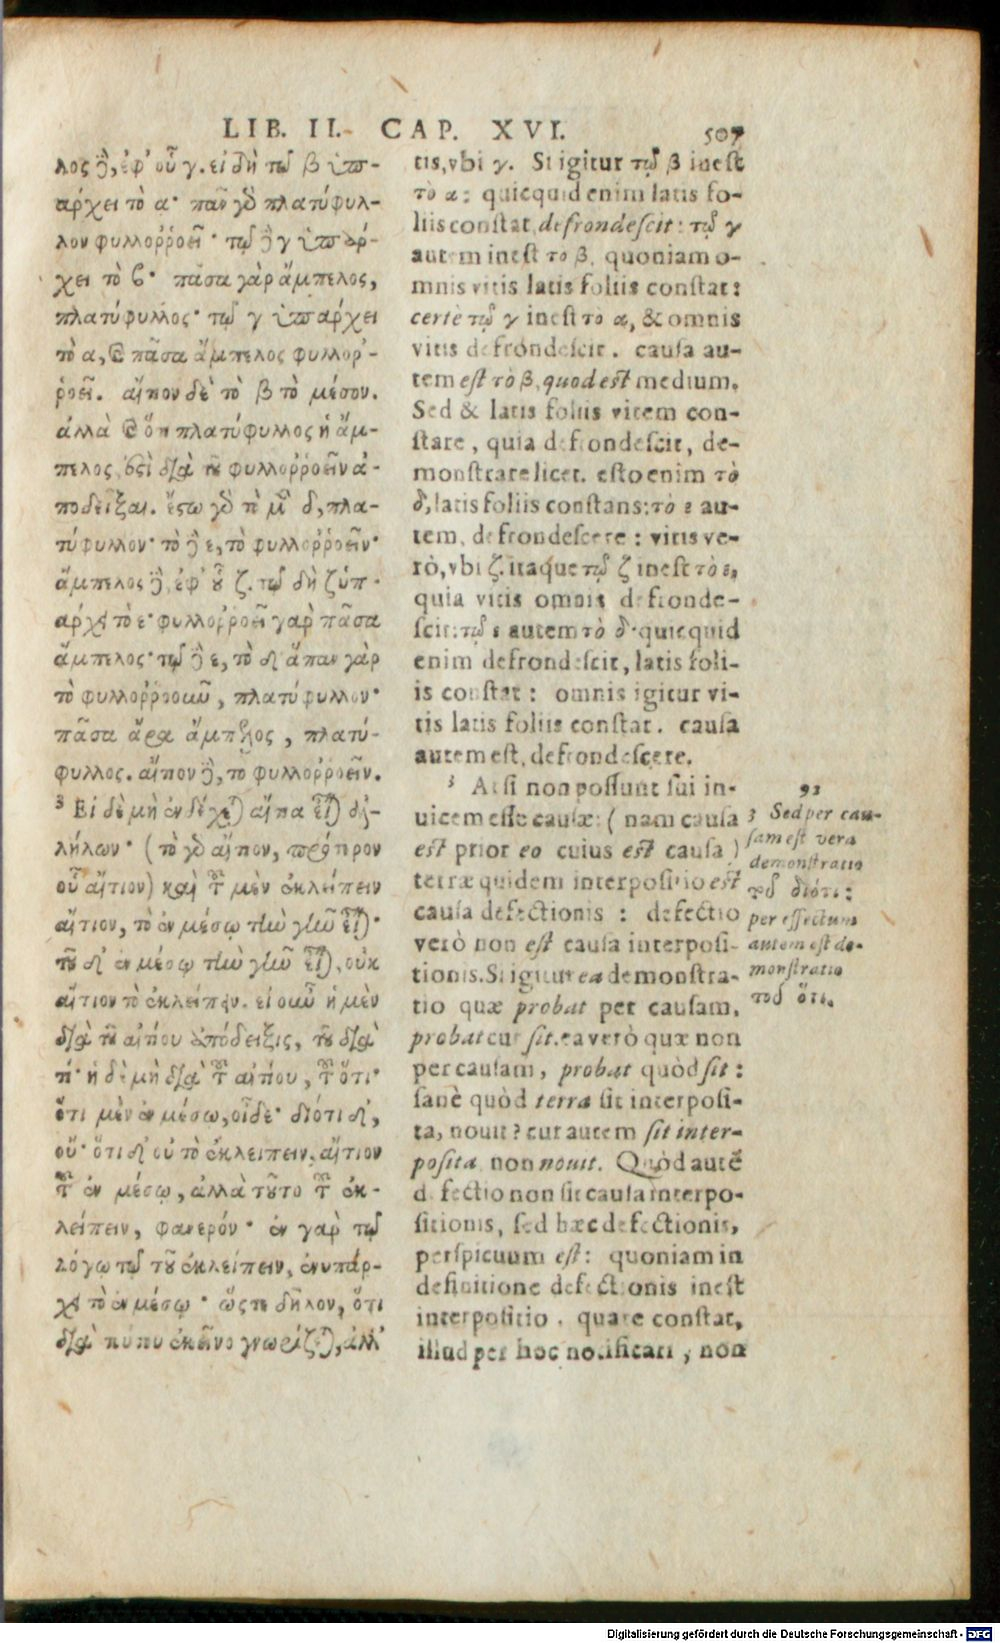 LIB. II. CAP. XVI. 507
λος δὲ, ἐφ' οὗ γ. εἰ δὴ τῷ β ὑπ-
άρχει τὸ α· πᾶν γὰρ πλατύφυλ-
λον φυλλοῤῥοεῖ· τῷ δὲ γ ὑπάρ-
χει τὸ ϐ· πᾶσα γὰρ ἄμπελος,
πλατύφυλλος· τῷ γ ὑπάρχει
τὸ α, καὶ πᾶσα ἄμπελος φυλλοῤ-
ῥοεῖ. αἴτιον δὲ τὸ β τὸ μέσον.
ἀλλὰ καὶ ὅτι πλατύφυλλος ἡ ἄμ-
πελος, ἔστι διὰ τοῦ φυλλοῤῥοεῖν ἀ-
ποδεῖξαι. ἔστω γὰρ τὸ μὲν δ, πλα-
τύφυλλον· τὸ δὲ ε, τὸ φυλλοῤῥοεῖν·
ἄμπελος δὲ, ἐφ' οὗ ζ. τῷ δὴ ζ ὑπ-
άρχει τὸ ε· φυλλοῤῥοεῖ γὰρ πᾶσα
ἄμπελος· τῷ δὲ ε, τὸ δ· ἅπαν γὰρ
τὸ φυλλοῤῥοοῦν, πλατύφυλλον·
πᾶσα ἄρα ἄμπελος, πλατύ-
φυλλος. αἴτιον δὲ, τὸ φυλλοῤῥοεῖν.
3 Εἰ δὲ μὴ ἐνδέχεται αἴτια εἶναι ἀλ-
λήλων· (τὸ γὰρ αἴτιον, πρότερον
οὗ αἴτιον) καὶ τοῦ μὲν ἐκλείπειν
αἴτιον, τὸ ἐν μέσῳ τὴν γῆν εἶναι·
τοῦ δ' ἐν μέσῳ τὴν γῆν εἶναι, οὐκ
αἴτιον τὸ ἐκλείπειν. εἰ οὖν ἡ μὲν
διὰ τοῦ αἰτίου ἀπόδειξις, τοῦ διὰ
τί· ἡ δὲ μὴ διὰ τοῦ αἰτίου, τοῦ ὅτι·
ὅτι μὲν ἐν μέσῳ, οἶδε· διότι δ',
οὔ· ὅτι δ' οὐ τὸ ἐκλείπειν, αἴτιον
τοῦ ἐν μέσῳ, ἀλλὰ τοῦτο τοῦ ἐκ-
λείπειν, φανερόν· ἐν γὰρ τῷ
λόγῳ τῷ τοῦ ἐκλείπειν, ἐνυπάρ-
χει τὸ ἐν μέσῳ· ὥστε δῆλον, ὅτι
διὰ τούτου ἐκεῖνο γνωρίζεται, ἀλλ'
tis, vbi γ. Si igitur τῷ β inest
τὸ α: quicquid enim latis fo-
liis constat, defrondescit: τῷ γ
autem inest τὸ β, quoniam o-
mnis vitis latis foliis constat:
certè τῷ γ inest τὸ α, & omnis
vitis defrondescit. causa au-
tem est τὸ β, quod est medium.
Sed & latis foliis vitem con-
stare, quia defrondescit, de-
monstrare licet. esto enim τὸ
δ, latis foliis constans: τὸ ε au-
tem, defrondescere: vitis ve-
rò, vbi ζ. itaque τῷ ζ inest τὸ ε,
quia vitis omnis defronde-
scit: τῷ ε autem τὸ δ· quicquid
enim defrondescit, latis foli-
is constat: omnis igitur vi-
tis latis foliis constat. causa
autem est, defrondescere.
3 At si non possunt sui in-
uicem esse causæ: (nam causa
est prior eo cuius est causa)
terræ quidem interpositio est
causa defectionis: defectio
verò non est causa interposi-
tionis. Si igitur ea demonstra-
tio quæ probat per causam,
probat cur sit. ea verò quæ non
per causam, probat quòd sit:
sanè quòd terra sit interposi-
ta, nouit? cur autem sit inter-
posita non nouit. Quòd autẽ
defectio non sit causa interpo-
sitionis, sed hæc defectionis,
perspicuum est: quoniam in
definitione defectionis inest
interpositio. quare constat,
illud per hoc notificari, non
92
3 Sed per cau-
sam est vera
demonstratio
τοῦ διότι:
per effectum
autem est de-
monstratio
τοῦ ὅτι.
Digitalisierung gefördert durch die Deutsche Forschungsgemeinschaft - DFG